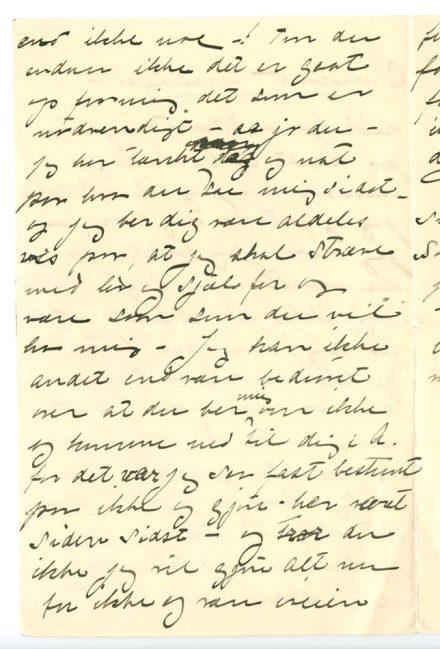 end ikke noe –! Tror du
endnu ikke det er godt
op for mig, det som er
nødvendigt – as jo du –
jeg har tænkt dag og nat
paa hva du sae mig sidst –
og jeg ber dig være aldeles
vis paa, at jeg skal stræve
med liv og sjæl for og
være som som du vil
ha mig – Jeg kan ikke
andet end være bedrøvet
over at du ber mig om ikke
og komme ned til dig i A.
for det var jeg saa fast bestemt
paa ikke og gjøre – har været
siden sidst – og tror du
ikke jeg vil gjøre alt nu
for ikke og være iveien